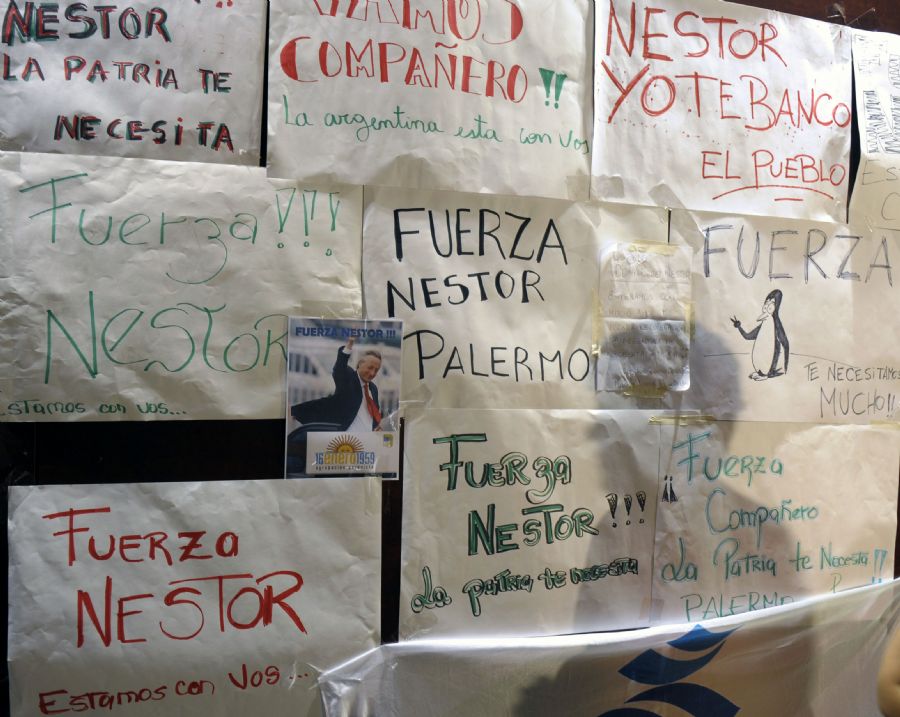 NESTOR
LA PATRIA TE
NECESITA
VAMOS
COMPAÑERO!!
La argentina esta con vos
NESTOR
YO TE BANCO
EL PUEBLO
Fuerza!!!
NESTOR
Estamos con vos...
FUERZA
NESTOR
PALERMO
FUERZA
TE NECESITAMOS
MUCHO!!
FUERZA NESTOR !!!
16enero1959
FUERZA
NESTOR
Estamos con Vos...
FUERZA
NESTOR!!!
La patria te necesita
¡¡Fuerza
Compañero
La Patria te Necesita!!
PALERMO